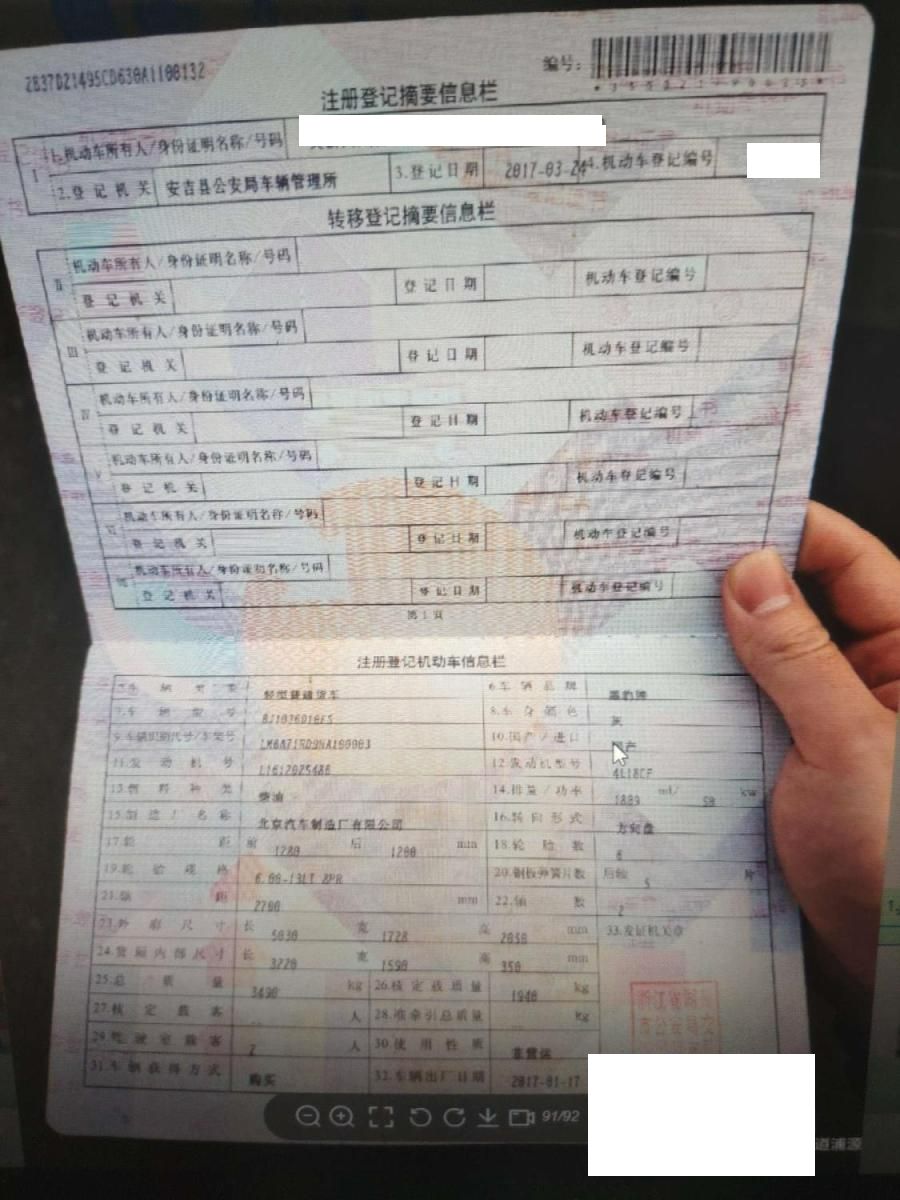 2B37D21495CD630A1100132
编号：
注册登记摘要信息栏
I 1.机动车所有人/身份证明名称/号码
2.登记机关 安吉县公安局车辆管理所 3.登记日期 2017-03-24 4.机动车登记编号
转移登记摘要信息栏
II 机动车所有人/身份证明名称/号码
登记机关 登记日期 机动车登记编号
III 机动车所有人/身份证明名称/号码
登记机关 登记日期 机动车登记编号
IV 机动车所有人/身份证明名称/号码
登记机关 登记日期 机动车登记编号
V 机动车所有人/身份证明名称/号码
登记机关 登记日期 机动车登记编号
VI 机动车所有人/身份证明名称/号码
登记机关 登记日期 机动车登记编号
VII 机动车所有人/身份证明名称/号码
登记机关 登记日期 机动车登记编号
第1页
注册登记机动车信息栏
5.车辆类型 轻型普通货车 6.车辆品牌 黑豹牌
7.车辆型号 8.车身颜色 灰
9.车辆识别代号/车架号 10.国产/进口 国产
11.发动机号 12.发动机型号 4L18CF
13.燃料种类 柴油 14.排量/功率 ml/ kw
15.制造厂名称 北京汽车制造厂有限公司 16.转向形式 方向盘
17.轮距 前 1280 后 1200 mm 18.轮胎数 6
19.轮胎规格 6.00-13LT 8PR 20.钢板弹簧片数 后轴 5 片
21.轴距 2700 mm 22.轴数 2
23.外廓尺寸 长 5030 宽 1728 高 2050 mm 33.发证机关章
24.货厢内部尺寸 长 3220 宽 1590 高 350 mm
25.总质量 3490 kg 26.核定载质量 1940 kg
27.核定载客 -- 人 28.准牵引总质量 -- kg
29.驾驶室载客 2 人 30.使用性质 非营运
31.车辆获得方式 购买 32.车辆出厂日期 2017-01-17
浙江省湖州
市公安局交
91/92
道浦源